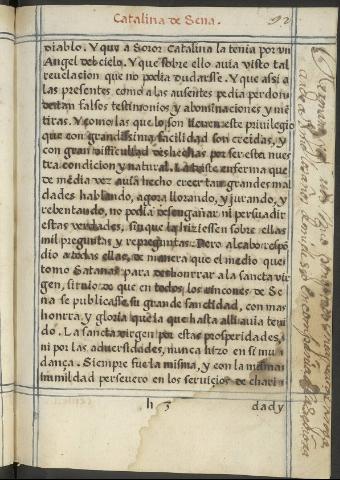 Catalina de Sena.
92
diablo. Y que a Soror Catalina la tenia por vn
Angel del cielo. Y que sobre ello auia visto tal
reuelacion que no podia dudarse. Y que assi a
las presentes como a las ausentes pedia perdon
de tan falsos testimonios y abominaciones y mē
tiras. Y como las que lo son lleuen este priuilegio
que con grandissima facilidad son creidas, y
con gran dificultad deshechas por ser esta nues
tra condicion y natural. La triste enferma que
de media vez auia hecho creer tan grandes mal
dades hablando, agora llorando, y jurando, y
rebentando, no podia desengañar ni persuadir
estas verdades, sin que la hiziessen sobre ellas
mil preguntas y repreguntas. Pero al cabo respō
dio a todas ellas, de manera que el medio que
tomo Satanas para deshonrrar a la sancta vir
gen, siruio de que en todos los rincones de Se
na se publicasse su grande sanctidad, con mas
honrra, y gloria que la que hasta alli auia teni
do. La sancta virgen por estas prosperidades,
ni por las aduersidades, nunca hizo en si mu
dança. Siempre fue la misma, y con la misma
humildad perseuero en los seruicios de chari
h 3
dady